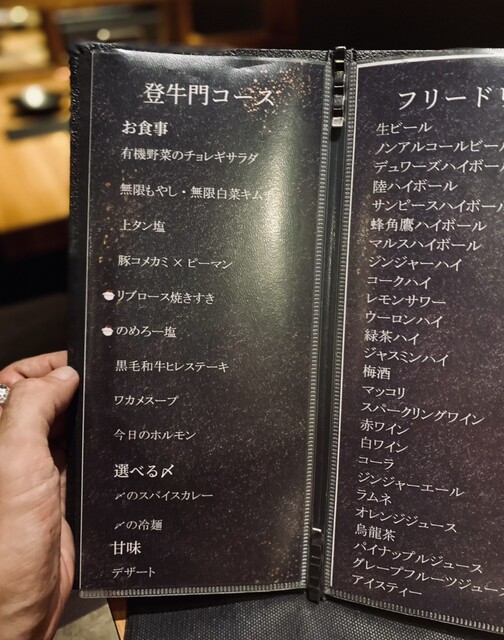 登牛門コース
お食事
有機野菜のチョレギサラダ
無限もやし・無限白菜キムチ
上タン塩
豚コメカミ×ピーマン
リブロース焼きすき
のめろー塩
黒毛和牛ヒレステーキ
ワカメスープ
今日のホルモン
選べる〆
〆のスパイスカレー
〆の冷麺
甘味
デザート
フリードリ
生ビール
ノンアルコールビール
デュワーズハイボール
陸ハイボール
サンピースハイボール
蜂角鷹ハイボール
マルスハイボール
ジンジャーハイ
コークハイ
レモンサワー
ウーロンハイ
緑茶ハイ
ジャスミンハイ
梅酒
マッコリ
スパークリングワイン
赤ワイン
白ワイン
コーラ
ジンジャーエール
ラムネ
オレンジジュース
烏龍茶
パイナップルジュース
グレープフルーツジュー
アイスティー